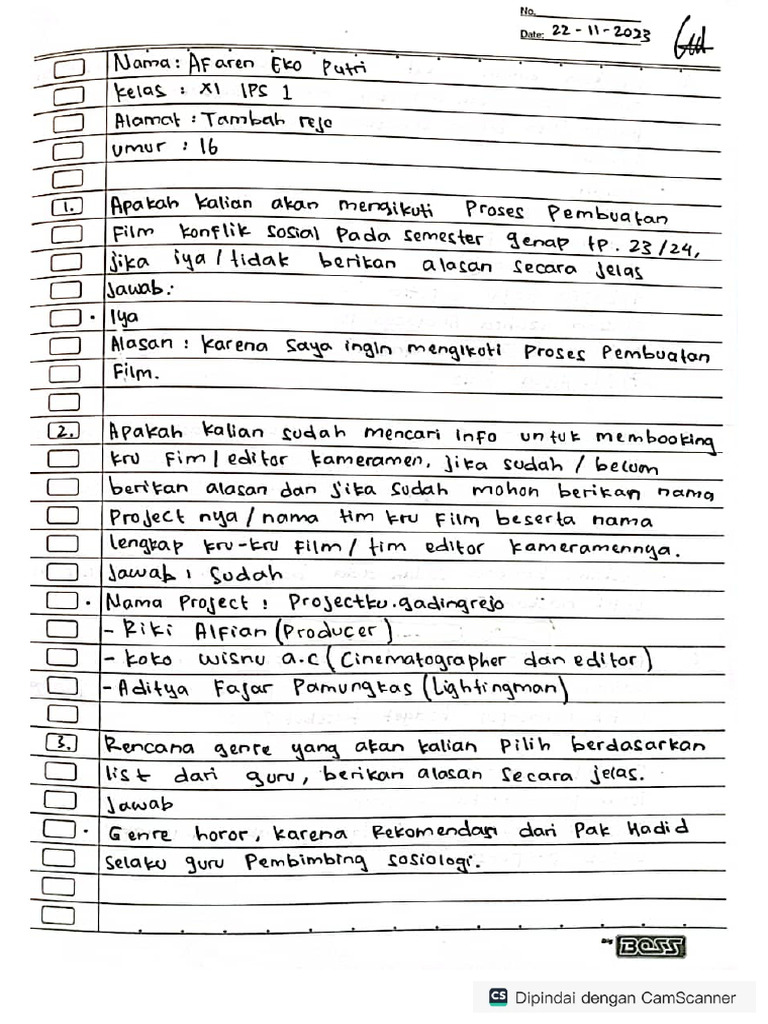 No.
Date: 22-11-2023
Nama: Afaren Eko Putri
Kelas : XI IPS 1
Alamat : Tambah rejo
umur : 16
1. Apakah kalian akan mengikuti Proses Pembuatan
Film konflik sosial Pada semester genap tp. 23/24,
jika iya/tidak berikan alasan secara jelas
Jawab:
• Iya
Alasan : Karena saya ingin mengikuti Proses Pembuatan
Film.
2. Apakah kalian sudah mencari info untuk membooking
kru Fim/editor kameramen, jika sudah/belum
berikan alasan dan jika sudah mohon berikan nama
Project nya/nama tim kru Film beserta nama
lengkap kru-kru Film/tim editor kameramennya.
Jawab : Sudah
• Nama Project : Projectku.gadingrejo
- Riki Alfian (Producer)
- Koko wisnu a.c (Cinematographer dan editor)
- Aditya Fajar Pamungkas (Lightingman)
3. Rencana genre yang akan kalian Pilih berdasarkan
list dari guru, berikan alasan secara jelas.
Jawab
• Genre horor, karena Rekomendasi dari Pak Hadid
selaku guru Pembimbing sosiologi.
BOSS
CS Dipindai dengan CamScanner